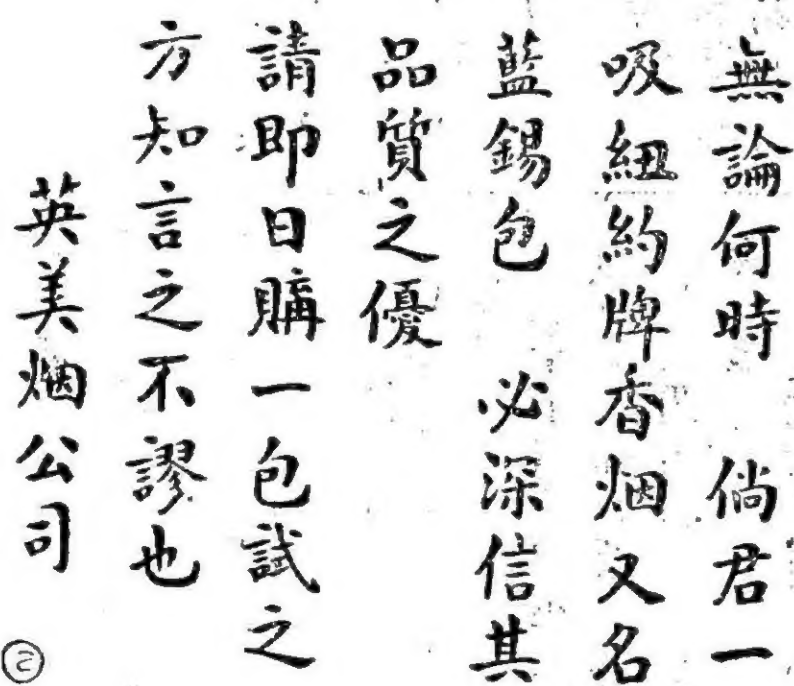 無論何時　倘君一
吸紐約牌香烟又名
藍錫包　必深信其
品質之優
請即日購一包試之
方知言之不謬也
英美烟公司